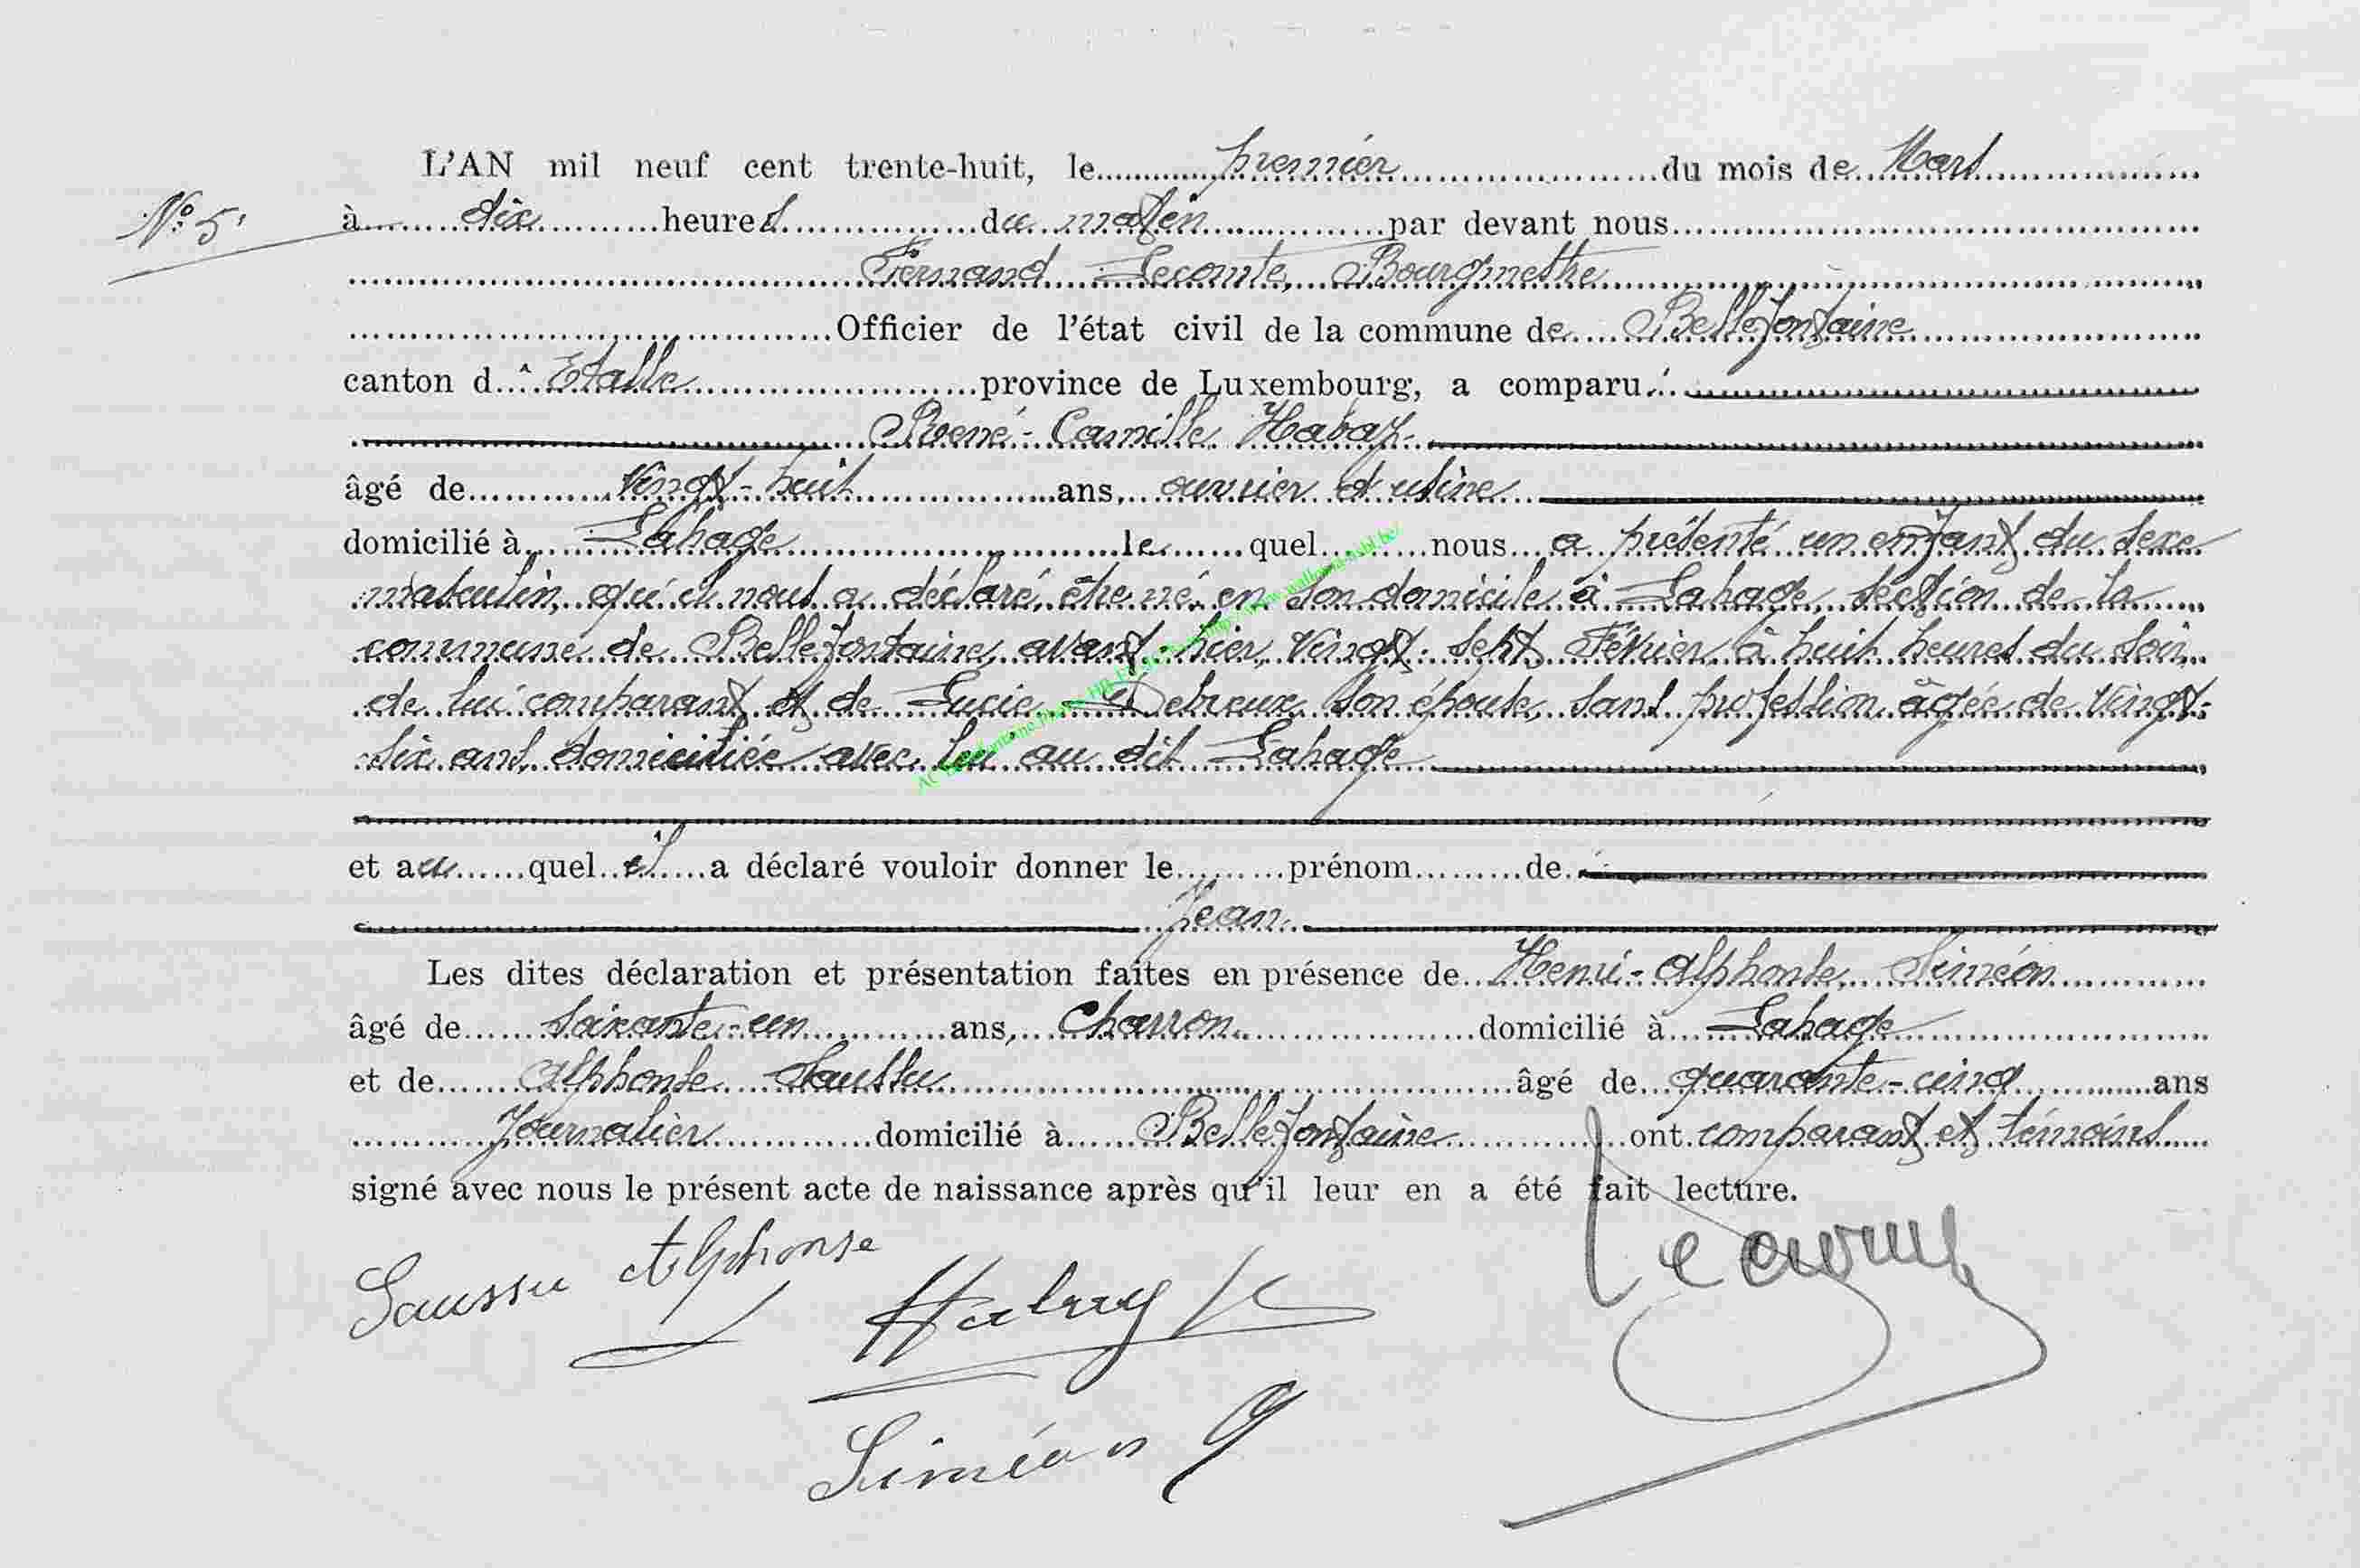 L'AN mil neuf cent trente-huit, le premier du mois de Mars
N° 5.
à dix heures du matin par devant nous
Fernand Lecomte, Bourgmestre
Officier de l'état civil de la commune de Bellefontaine
canton d'Etalle province de Luxembourg, a comparu :
René-Camille Habay
âgé de Vingt-huit ans, ouvrier d'usine
domicilié à Lahage le quel nous a présenté un enfant du sexe
masculin, qu'il nous a déclaré être né en son domicile à Lahage, section de la
commune de Bellefontaine, avant-hier, Vingt-sept Février, à huit heures du soir,
de lui comparant et de Lucie Debreux, son épouse, sans profession, âgée de Vingt-
six ans, domiciliée avec lui au dit Lahage
et au quel il a déclaré vouloir donner le prénom de :
Jean.
Les dites déclaration et présentation faites en présence de Henri-Alphonse Siméon
âgé de soixante-un ans, Charron domicilié à Lahage
et de Alphonse Saussu âgé de quarante-cinq ans
Journalier domicilié à Bellefontaine ont comparant et témoins
signé avec nous le présent acte de naissance après qu'il leur en a été fait lecture.
Saussu Alphonse
Habay R
Lecomte
Siméon